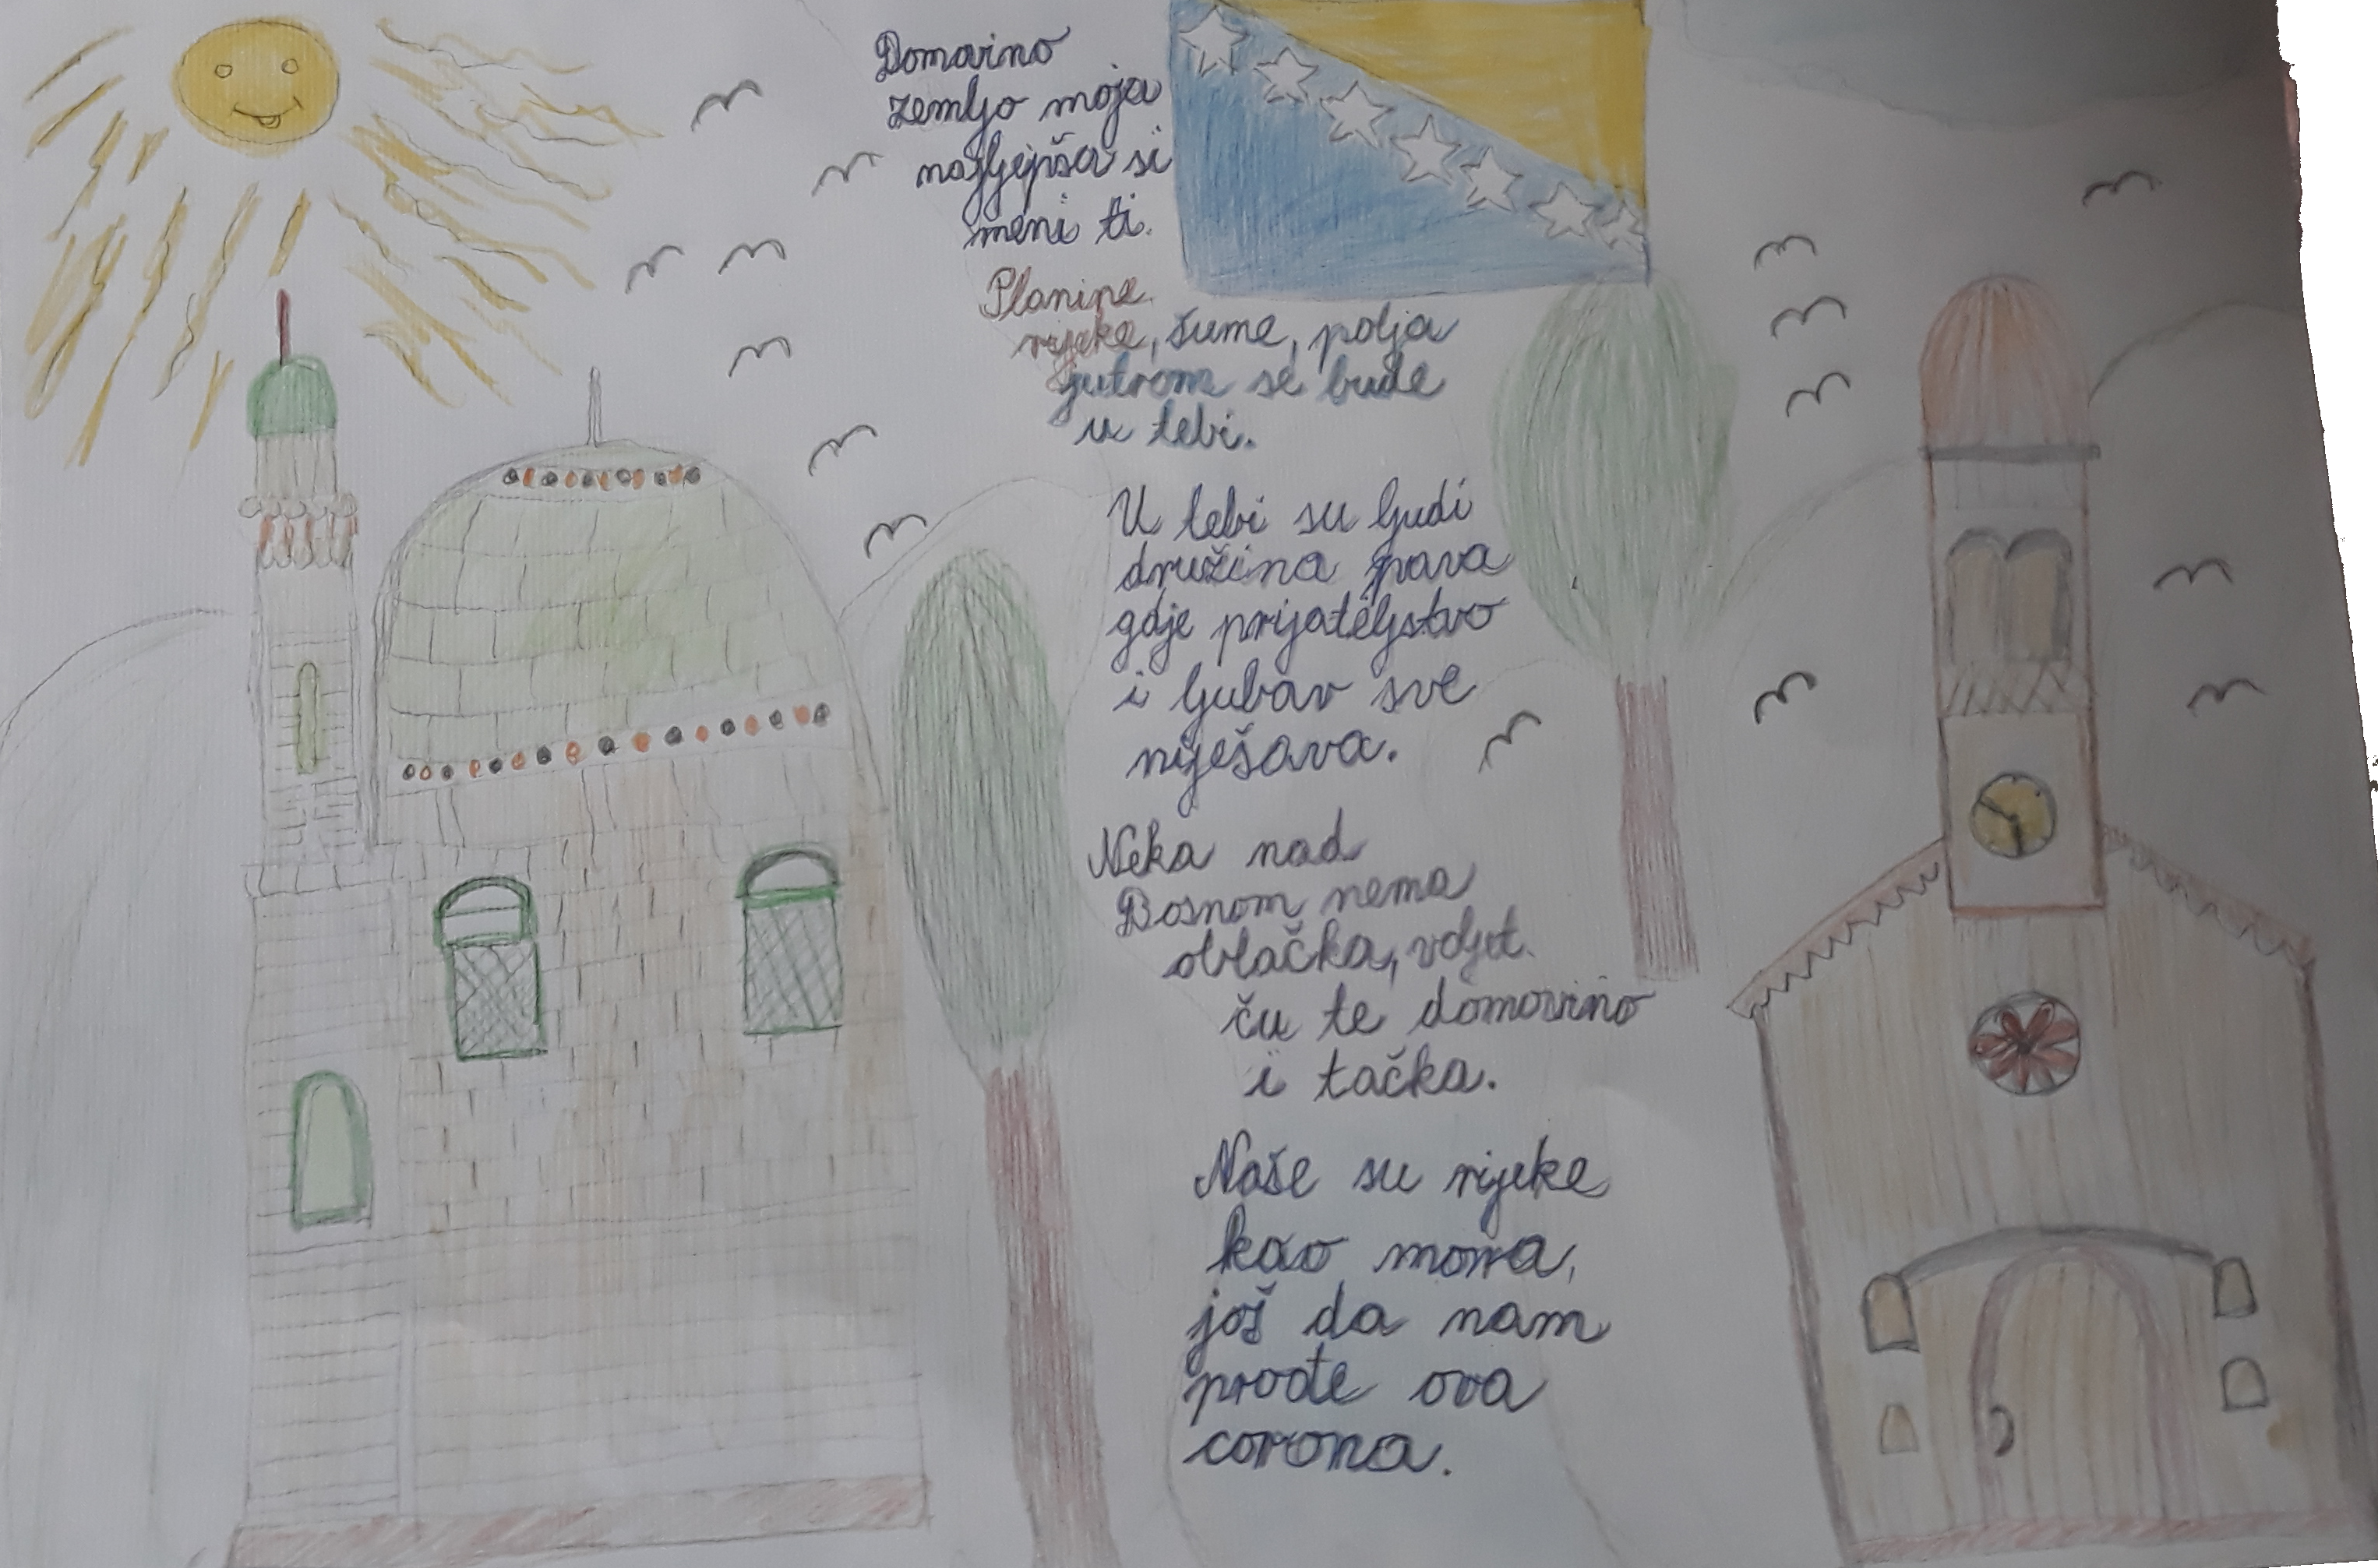 Domovino
zemljo moja
najljepša si
meni ti.
Planine
rijeke, šume, polja
jutrom se bude
u tebi.
U tebi su ljudi
družina prava
gdje prijateljstvo
i ljubav sve
rješava.
Neka nad
Bosnom nema
oblačka, voljet
ču te domovino
i tačka.
Naše su rijeke
kao mora,
još da nam
prođe ova
corona.